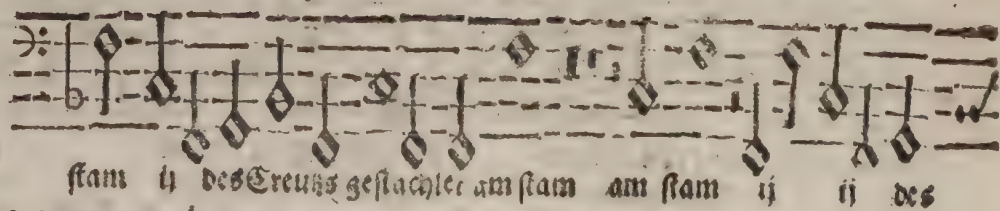 ſtam ij des Creutzs geſtachlet am ſtam am ſtam ij ij des